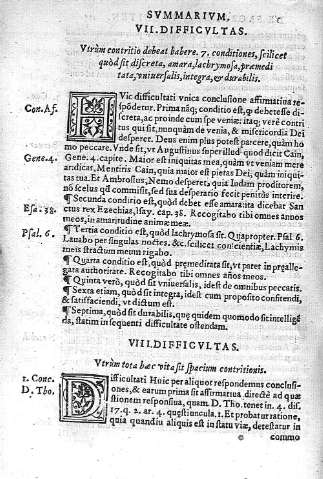 SVMMARIVM.
VII. DIFFICVLTAS.
Vtrùm contritio debeat habere. 7. conditiones, scilicet
quòd sit discreta, amara, lachrymosa, præmedi
tata, vniuersalis, integra, & durabilis.
Con. Af.
HVic difficultati vnica conclusione affirmatiua re-
spõdetur. Prima nãq; conditio est, ꝙ debet esse di-
screta, ac proinde cum spe veniæ: itaq; verè contri
tus qui sit, nunquàm de venia, & misericordia Dei
desperet. Deus enim plus potest parcere, quàm ho
mo peccare. Vnde sit, vt Augustinus super illud quod dicit Cain,
Gene. 4.
Gene. 4. capite. Maior est iniquitas mea, quàm vt veniam mere
ar: dicat, Mentiris Cain, quia maior est pietas Dei, quàm iniqui-
tas tua. Et Ambrosius, Nemo desperet, quia Iudam proditorem,
nõ scelus qd commisit, sed sua desperatio fecit penitùs interire.
¶ Secunda conditio est, quòd debet esse amara: ita dicebat San
Esa. 38.
ctus rex Ezechias, Isay. cap. 38. Recogitabo tibi omnes annos
meos, in amaritudine animæ meæ.
Psal. 6.
¶ Tertia conditio est, quòd lachrymosa sit. Qua propter. Psal. 6.
Lauabo per singulas noctes, &c. scilicet conscientiæ, Lachymis
meis stractum meum rigabo.
¶ Quarta conditio est, quòd præmeditata sit, vt patet in præalle-
gata authoritate. Recogitabo tibi omnes años meos.
¶ Quinta verò, quòd sit vniuersalis, idest de omnibus peccatis.
¶ Sexta etiam, quòd sit integra, idest cum proposito confitendi,
& satisfaciendi, vt dictum est.
¶ Septima, quòd sit durabilis, quę quidem quomodo sit intelligẽ
da, statim in sequenti difficultate ostendam.
VIII. DIFFICVLTAS.
Vtrùm tota hæc vita sit spacium contritionis.
1. Conc.
D. Tho.
DIfficultati Huic per aliquot respondemus conclusi-
ones, & earum prima sit affirmatiua directè ad quæ
stionem responsiua, quam D. Tho. tenet in. 4. dis.
17. q. 2. ar. 4. quęstiuncula. 1. Et probatur ratione,
quia quandiu aliquis est in statu viæ, detestatur in
commo